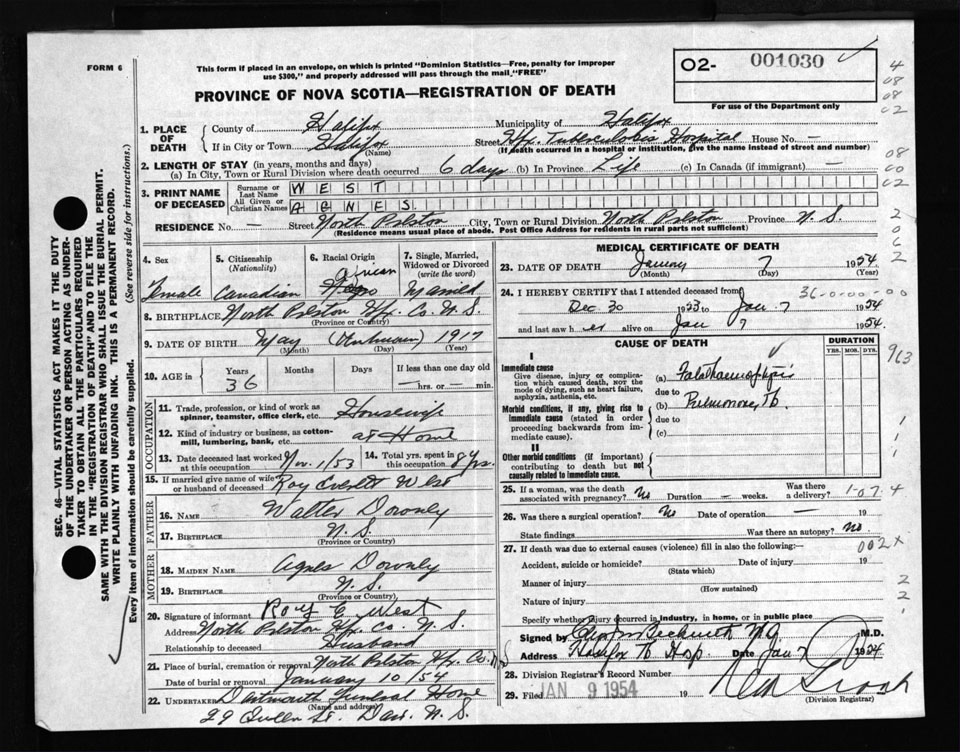 FORM 6
This form if placed in an envelope, on which is printed "Dominion Statistics—Free, penalty for improper
use $300," and properly addressed will pass through the mail "FREE"
PROVINCE OF NOVA SCOTIA—REGISTRATION OF DEATH
O2- 001030
For use of the Department only
SEC. 46—VITAL STATISTICS ACT MAKES IT THE DUTY
OF THE UNDERTAKER OR PERSON ACTING AS UNDER-
TAKER TO OBTAIN ALL THE PARTICULARS REQUIRED
IN THE "REGISTRATION OF DEATH" AND TO FILE THE
SAME WITH THE DIVISION REGISTRAR WHO SHALL ISSUE THE BURIAL PERMIT.
WRITE PLAINLY WITH UNFADING INK. THIS IS A PERMANENT RECORD.
Every item of information should be carefully supplied. (See reverse side for instructions.)
1. PLACE OF DEATH
County of Halifax Municipality of Halifax
If in City or Town Halifax (Name) Street Hfx. Tuberculosis Hospital House No. —
(If death occurred in a hospital or institution, give the name instead of street and number)
2. LENGTH OF STAY (in years, months and days)
(a) In City, Town or Rural Division where death occurred 6 days (b) In Province Life (c) In Canada (if immigrant) —
3. PRINT NAME OF DECEASED
Surname or Last Name WEST
All Given or Christian Names AGNES.
RESIDENCE No. — Street North Preston City, Town or Rural Division North Preston Province N. S.
(Residence means usual place of abode. Post Office Address for residents in rural parts not sufficient)
4. Sex Female
5. Citizenship (Nationality) Canadian
6. Racial Origin African
7. Single, Married, Widowed or Divorced (write the word) Married
8. BIRTHPLACE North Preston Hfx. Co. N. S.
(Province or Country)
9. DATE OF BIRTH May (Unknown) 1917
(Month) (Day) (Year)
10. AGE in Years 36 Months Days If less than one day
— hrs. or — min.
OCCUPATION
11. Trade, profession, or kind of work as
spinner, teamster, office clerk, etc. Housewife
12. Kind of industry or business, as cotton-
mill, lumbering, bank, etc. at Home
13. Date deceased last worked at this occupation Nov. 1/53
14. Total yrs. spent in this occupation 8 yrs.
15. If married give name of wife
or husband of deceased Roy Everett West
FATHER
16. NAME Walter Downey
17. BIRTHPLACE N. S.
(Province or Country)
MOTHER
18. MAIDEN NAME Agnes Downey
19. BIRTHPLACE N. S.
(Province or Country)
20. Signature of informant Roy E West
Address North Preston Hfx. Co. N. S.
Relationship to deceased Husband
21. Place of burial, cremation or removal North Preston Hfx. Co. N.S.
Date of burial or removal January 10/54
22. UNDERTAKER Dartmouth Funeral Home
(Name and address)
29 Queen St. Dart. N. S.
MEDICAL CERTIFICATE OF DEATH
23. DATE OF DEATH January 7 1954
(Month) (Day) (Year)
24. I HEREBY CERTIFY that I attended deceased from 36-0-00-00
Dec 30 1953 to Jan 7 1954
and last saw her alive on Jan 7 1954.
CAUSE OF DEATH
DURATION
YRS. MOS. DYS.
I
Immediate cause
Give disease, injury or complication which caused death, NOT the mode of dying, such as heart failure, asphyxia, asthenia, etc.
(a)
due to
(b) Pulmonary Tb
due to
(c)
Morbid conditions, if any, giving rise to immediate cause (stated in order proceeding backwards from immediate cause).
II
Other morbid conditions (if important) contributing to death but not causally related to immediate cause.
25. If a woman, was the death
associated with pregnancy? No Duration — weeks. Was there a delivery? 1-07 4
26. Was there a surgical operation? No Date of operation — 19
State findings Was there an autopsy? No.
27. If death was due to external causes (violence) fill in also the following:— 002x
Accident, suicide or homicide? Date of injury 19
(State which)
Manner of injury
(How sustained)
Nature of injury
Specify whether injury occurred in industry, in home, or in public place
Signed by M.D.
Address Halifax Tb Hosp Date Jan 7 1954
28. Division Registrar's Record Number
29. Filed JAN 9 1954 19
(Division Registrar)
4
08
08
02
08
00
02
2
0
6
2
963
1
1
2
2